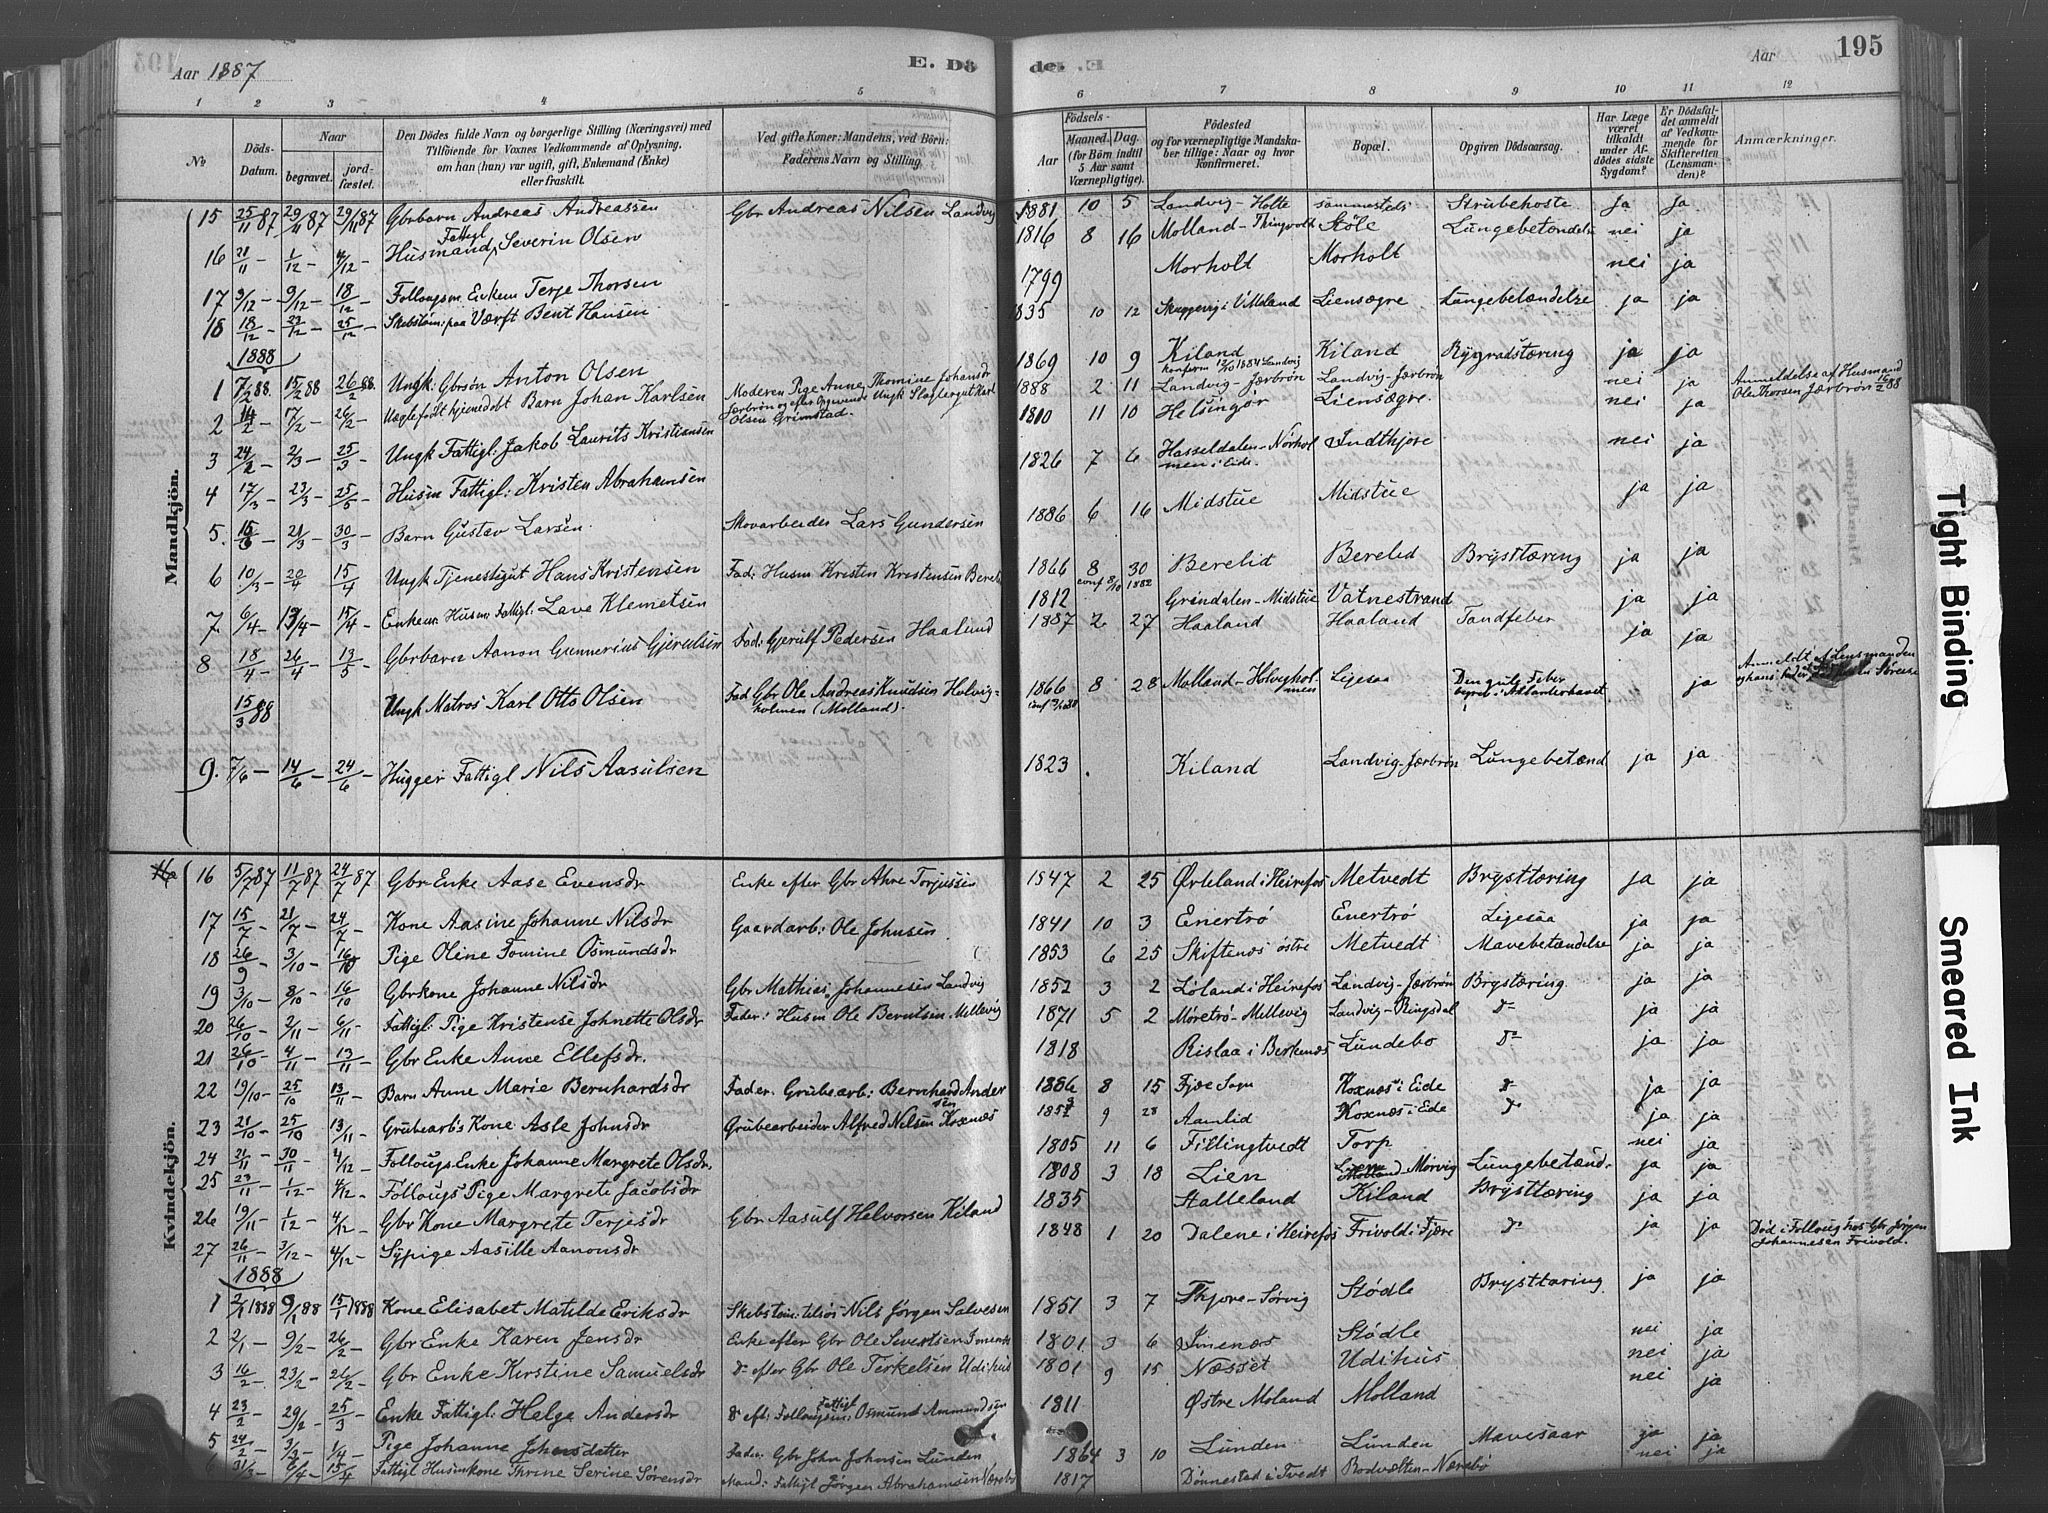 Aar 1887
E. Dö
de. E.
Aar
195
1 2 3 4 5 6 7 8 9 10 11 12
No
Döds-Datum.
Naar
begravet.
jord-fæstet.
Den Dödes fulde Navn og borgerlige Stilling (Næringsvei) med
Tilföiende for Voxnes Vedkommende af Oplysning,
om han (hun) var ugift, gift, Enkemand (Enke)
eller fraskilt.
Ved gifte Koner: Mandens, ved Börn:
Faderens Navn og Stilling.
Födsels-
Aar
Maaned. Dag.
(for Börn indtil
5 Aar samt
Værnepligtige).
Födested
og for værnepligtige Mandska-
ber tillige: Naar og hvor
konfirmeret.
Bopæl.
Opgiven Dödsaarsag.
Har Læge
været
tilkaldt
under Af-
dödes sidste
Sygdom?
Er Dödsfal-
det anmeldt
af Vedkom-
mende for
Skifteretten
(Lensman-
den)?
Anmærkninger.
Mandkjön.
15 25/11 87 29/11 87 29/11 87 Gbrbarn Andreas Andreassen Gbr Andreas Nilsen Landvig 1881 10 5 Landvig-Holte sammesteds Strubehoste ja ja
16 21/11 – 1/12 – 4/12 – Husmand Fattigl Severin Olsen 1816 8 16 Molland-Thingvolt Støle Lungebetændelse nei ja
17 3/12 – 9/12 – 18/12 – Follougsm. Enkem Terje Thorsen 1799 Morholt Morholt nei ja
18 18/12 – 23/12 – 25/12 – Skibstøm: paa Værft Bent Hansen 1835 10 12 Skuggevig i V. Moland Liensøgre Lungebetændelse ja ja
1888
1 7/2 88 15/2 88 26/2 88 Ungk: Gbrsøn Anton Olsen 1869 10 9 Kiland konfirm 12/10 1884 Landvig Kiland Rygradstæring ja ja
2 14/2 – 17/2 – 26/2 – Uægtefødt hjemedøbt Barn Johan Karlsen Moderen Pige Anne Thomine Johansdr Jærbrøn og efter Opgivende Ungk Slagtergut Karl Olsen Grimstad. 1888 2 11 Landvig-Jærbrøn Landvig-Jærbrøn nei ja Anmeldelse af Husmand Ole Thorsen Jærbrøn 16/2 88
3 24/2 – 2/3 – 25/3 – Ungk Fattigl: Jakob Laurits Kristiansen 1810 11 10 Helsingør Liensøgre nei ja
4 17/3 – 23/3 – 25/5 – Husm Fattigl: Kristen Abrahamsen 1826 7 6 Hasseldalen-Nørholmen i Eide. Indthjore nei ja
5. 15/3 – 21/3 – 30/3 – Barn Gustav Larsen Skovarbeider Lars Gundersen 1886 6 16 Midstue Midstue ja ja
6 10/3 – 20/4 – 15/4 – Ungk Tjenestegut Hans Kristensen Fad: Husm Kristen Kristensen Berelid 1866 8 30 conf 8/10 1882 Berelid Berelid Brysttæring ja ja
7 6/4 – 13/4 – 15/4 – Enkem: Husm: Fattigl: Lave Klemetsen 1812 Grindalen-Midstue Vatnestrand ja ja
8 18/4 – 26/4 – 13/5 – Gbrbarn Aanon Gunnerius Gjerulsen Fad: Gjerulf Pedersen Haaland 1887 2 27 Haaland Haaland Tandfeber ja ja
15/3 88 Ungk Matros Karl Otto Olsen Fad Gbr Ole Andreas Knudsen Holvigholmen (Molland). 1866 8 28 Molland-Holvigholmen Ligesaa Den gule Feber ja Anmeldt af Lensmanden og hans Fader
9. 7/6 – 14/6 – 24/6 – Hugger Fattigl Nils Aasulsen 1823 Kiland Landvig-Jærbrøn Lungebetænd ja ja
Kvindekjön.
16 5/7 87 11/7 87 24/7 87 Gbr Enke Aase Evensdr Enke efter Gbr Ahre Torjussen 1847 2 25 Ørteland i Heirefos Metvedt Brysttæring ja ja
17 15/7 – 21/7 – 24/7 – Kone Aasine Johanne Nilsdr Gaardarb: Ole Johnsen 1841 10 3 Enertrø Enertrø Ligesaa ja ja
18 26/9 – 3/10 – 16/10 – Pige Oline Tomine Osmundsdr 1853 6 25 Skiftenes østre Metvedt Mavebetændelse ja ja
19 3/10 – 8/10 – 16/10 – Gbrkone Johanne Nilsdr Gbr Mathias Johannesen Landvig 1852 3 2 Løland i Heirefos Landvig-Jærbrøn Brystæring ja ja
20 26/10 – 2/11 – 6/11 – Fattigl: Pige Kristense Johnette Olsdr Fader: Husm Ole Berntsen Mellevig 1871 5 2 Møretrø-Mellevig Landvig-Ringsdal D– ja ja
21 26/10 – 4/11 – 13/11 – Gbr Enke Anne Ellefsdr. 1818 Rislaa i Berkenes Lundebo D– ja ja
22 19/10 – 25/10 – 13/11 – Barn Anne Marie Bernhardsdr Fader: Grubearb: Bernhard Andersen 1886 8 15 Fjæe Sogn Koxnes i Eide D– ja ja
23 21/10 – 25/10 – 13/11 – Grubearb's Kone Asle Johnsdr Grubearbeider Alfred Nilsen Koxnæs 9 28 Aamlid Koxnæs i Ede D– ja ja
24 21/11 – 30/11 – 4/12 – Follougs Enke Johanne Margrete Olsdr. 1805 11 6 Fillingtvedt Torp nei ja
25 23/11 – 1/12 – 4/12 – Follougs Pige Margrete Jacobsdr 1808 3 18 Lien Molland-Morvig Lungebetænd. ja ja
26 19/11 – 1/12 – 4/12 – Gbr Kone Margrete Terjesdr Gbr Aasulf Helvorsen Kiland 1835 Stalleland Kiland Brysttæring ja ja
27 26/11 – 3/12 – 4/12 – Sypige Aasille Aanonsdr 1848 1 20 Dalene i Heirefos Frivold i Fjære D– ja ja Død i Follough hos Gbr Jørgen Johannesen Frivold.
1888
1 2/1 1888 9/1 88 15/1 1888 Kone Elisabet Matilde Eriksdr Skibstøm: tilsiøs Nils Jørgen Salvesen 1851 3 7 Thjore-Sørvig Stødle Brysttæring ja ja
2 2/1 – 9/2 – 26/2 – Gbr Enke Karen Jensdr Enke efter Gbr Ole Sivertsen Imenes 1801 3 6 Imenæs Stødle nei ja
3 16/2 – 23/2 – 26/2 – Gbr Enke Kirstine Samuelsdr D– efter Gbr Ole Terkelsen Udihus 1801 9 15 Næsset Udihus nei ja
4 23/2 – 29/2 – 25/3 – Enke Fattigl: Helge Andersdr D– eft: Follougsm: Fattigl Osmund Ammundsen 1811 Østre Moland Molland nei ja
5 24/2 – 3/3 – 1/4 – Pige Johanne Johnsdatter Fader: Gbr John Johnsen Lunden 1864 3 10 Lunden Lunden Mavesaar ja ja
6 31/3 – 6/4 – 15/4 Fattigl Husmkone Thrine Serine Sørensdr Mand: Fattigl Jørgen Abrahamsen Nærebø 1817 Dønnestad i Tvedt Rodvelten-Nærebø nei ja
Tight Binding
Smeared Ink